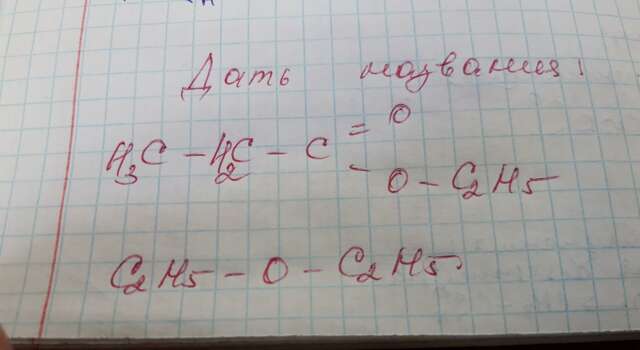 Дать названия:
= O
H3C - H2C - C
- O - C2H5
C2H5 - O - C2H5